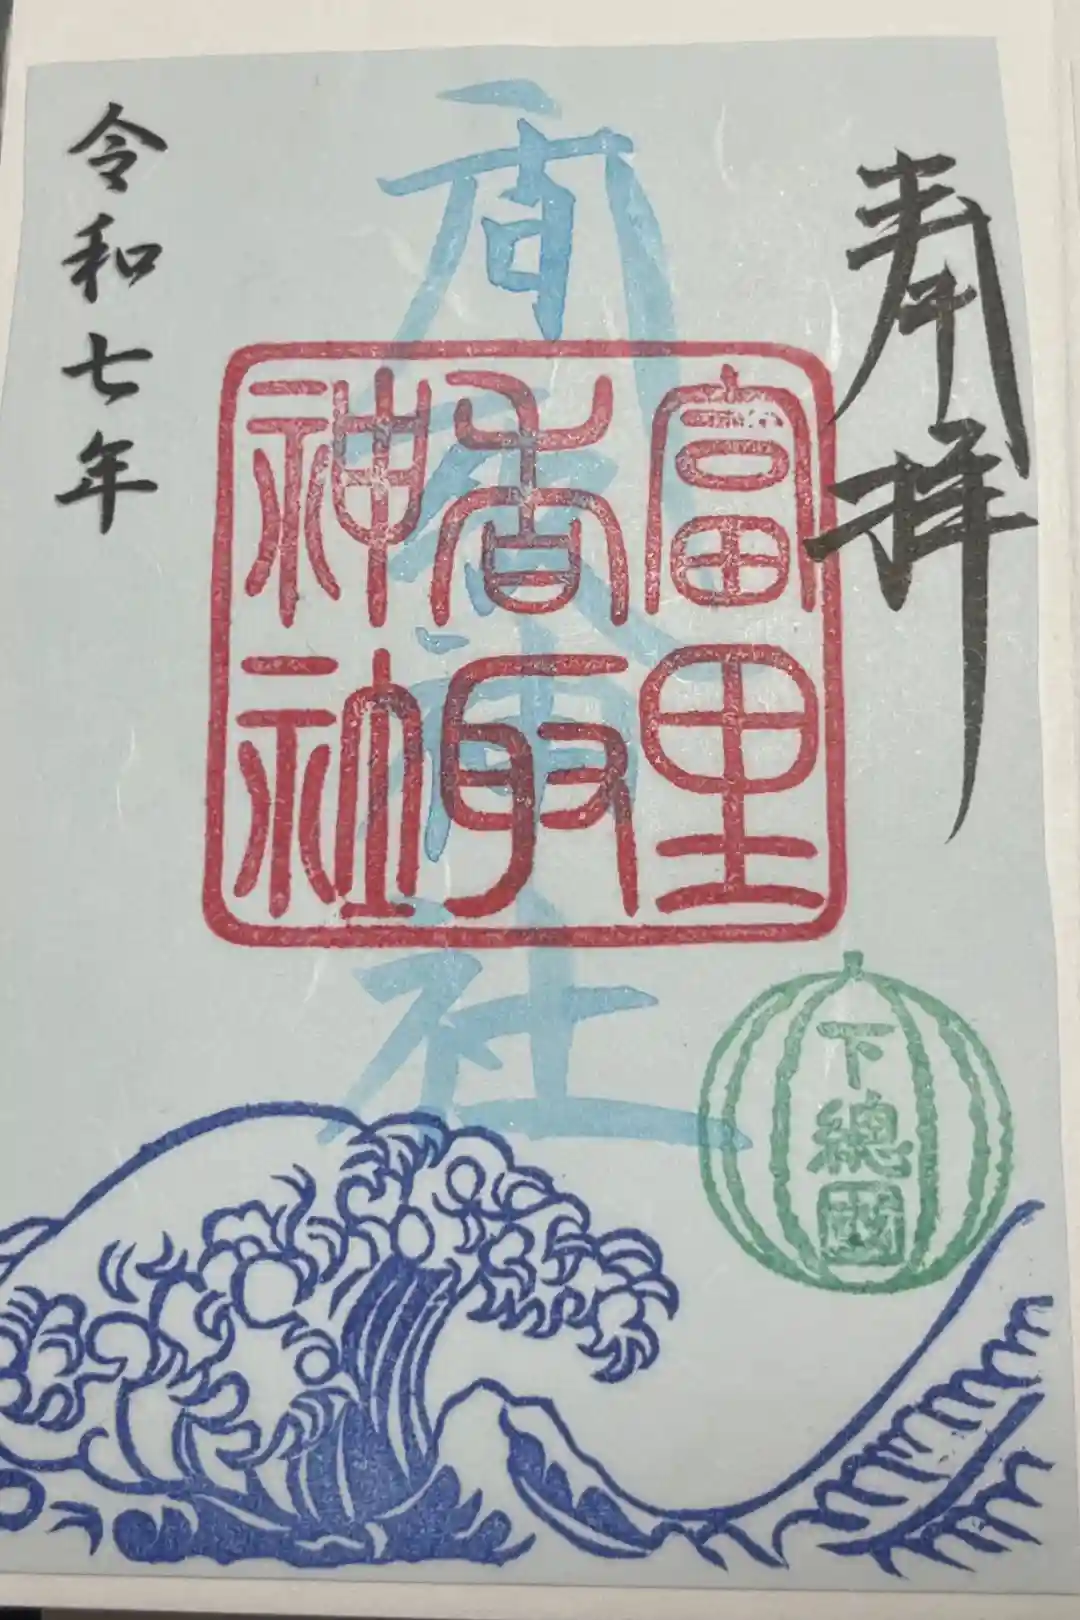 奉拝
香取神社
富里
香取
神社
下總國
令和七年